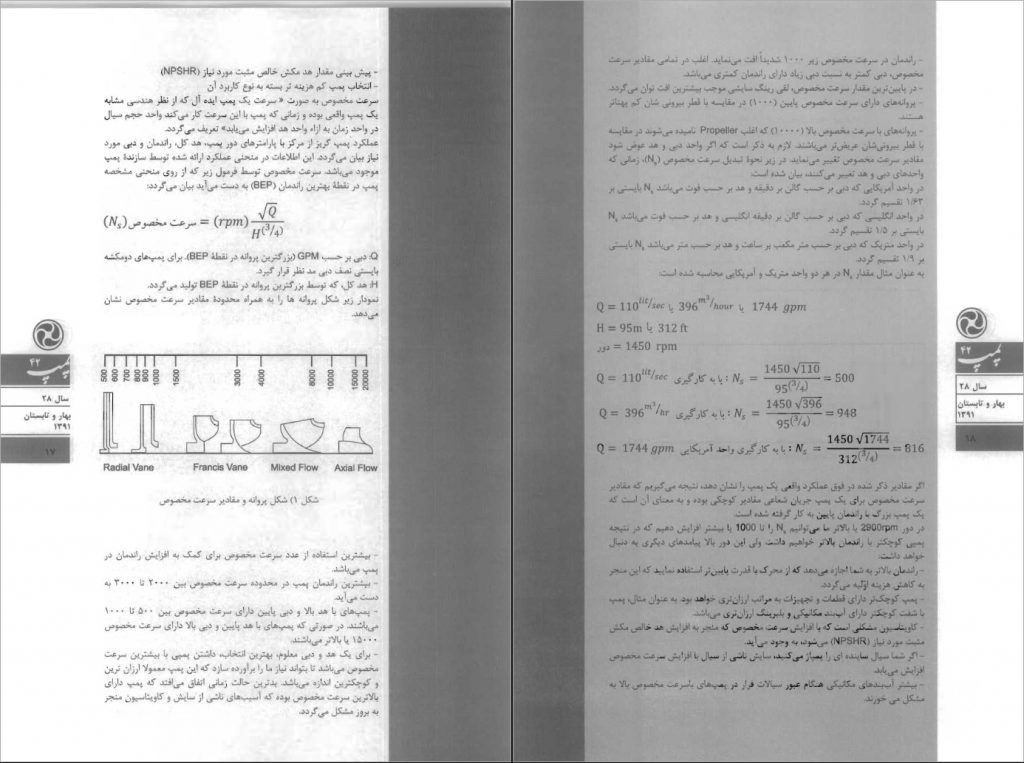 - پیش بینی مقدار هد مکش خالص مثبت مورد نیاز (NPSHR)
- انتخاب پمپ کم هزینه تر بسته به نوع کاربرد آن
سرعت مخصوص به صورت « سرعت یک پمپ ایده آل که از نظر هندسی مشابه
یک پمپ واقعی بوده و زمانی که پمپ با این سرعت کار می‌کند واحد حجم سیال
در واحد زمان به ازاء واحد هد افزایش می‌یابد» تعریف می‌گردد.
عملکرد پمپ گریز از مرکز با پارامترهای دور پمپ، هد کل، راندمان و دبی مورد
نیاز بیان می‌گردد. این اطلاعات در منحنی عملکرد ارائه شده توسط سازندهٔ پمپ
موجود می‌باشد. سرعت مخصوص توسط فرمول زیر که از روی منحنی مشخصه
پمپ در نقطهٔ بهترین راندمان (BEP) به دست می‌آید بیان می‌گردد:
(Nₛ) سرعت مخصوص = (rpm) √Q / H^(3/4)
Q: دبی بر حسب GPM (بزرگترین پروانه در نقطهٔ BEP). برای پمپ‌های دومکشه
بایستی نصف دبی مد نظر قرار گیرد.
H: هد کل، که توسط بزرگترین پروانه در نقطهٔ BEP تولید می‌گردد.
نمودار زیر شکل پروانه ها را به همراه محدودهٔ مقادیر سرعت مخصوص نشان
می‌دهد.
500 600 700 800 900 1000 1500 3000 4000 8000 10000 15000 20000
Radial Vane Francis Vane Mixed Flow Axial Flow
شکل ۱) شکل پروانه و مقادیر سرعت مخصوص
- بیشترین استفاده از عدد سرعت مخصوص برای کمک به افزایش راندمان در
پمپ می‌باشد.
- بیشترین راندمان پمپ در محدوده سرعت مخصوص بین ۲۰۰۰ تا ۳۰۰۰ به
دست می‌آید.
- پمپ‌های با هد بالا و دبی پایین دارای سرعت مخصوص بین ۵۰۰ تا ۱۰۰۰
می‌باشند. در صورتی که پمپ‌های با هد پایین و دبی بالا دارای سرعت مخصوص
۱۵۰۰۰ یا بالاتر می‌باشند.
- برای یک هد و دبی معلوم، بهترین انتخاب، داشتن پمپی با بیشترین سرعت
مخصوص می‌باشد تا بتواند نیاز ما را برآورده سازد که این پمپ معمولا ارزان ترین
و کوچکترین اندازه می‌باشد. بدترین حالت زمانی اتفاق می‌افتد که پمپ دارای
بالاترین سرعت مخصوص بوده که آسیب‌های ناشی از سایش و کاویتاسیون منجر
به بروز مشکل می‌گردد.
پمپ ۴۲
سال ۲۸
بهار و تابستان
۱۳۹۱
۱۷
- راندمان در سرعت مخصوص زیر ۱۰۰۰ شدیداً افت می‌نماید. اغلب در تمامی مقادیر سرعت
مخصوص، دبی کمتر به نسبت دبی زیاد دارای راندمان کمتری می‌باشد.
- در پایین‌ترین مقدار سرعت مخصوص، لقی رینگ سایشی موجب بیشترین افت توان می‌گردد.
- پروانه‌های دارای سرعت مخصوص پایین (۱۰۰۰) در مقایسه با قطر بیرونی شان کم پهناتر
هستند.
- پروانه‌های با سرعت مخصوص بالا (۱۰۰۰۰) که اغلب Propeller نامیده می‌شوند در مقایسه
با قطر بیرونی‌شان عریض‌تر می‌باشند. لازم به ذکر است که اگر واحد دبی و هد عوض شود
مقادیر سرعت مخصوص تغییر می‌نماید. در زیر نحوهٔ تبدیل سرعت مخصوص (Nₛ)، زمانی که
واحدهای دبی و هد تغییر می‌کنند، بیان شده است:
در واحد آمریکایی که دبی بر حسب گالن بر دقیقه و هد بر حسب فوت می‌باشد Nₛ بایستی بر
۱/۶۳ تقسیم گردد.
در واحد انگلیسی که دبی بر حسب گالن بر دقیقه انگلیسی و هد بر حسب فوت می‌باشد Nₛ
بایستی بر ۱/۵ تقسیم گردد.
در واحد متریک که دبی بر حسب متر مکعب بر ساعت و هد بر حسب متر می‌باشد Nₛ بایستی
بر ۱/۹ تقسیم گردد.
به عنوان مثال مقدار Nₛ در هر دو واحد متریک و آمریکایی محاسبه شده است:
Q = 110 lit/sec یا 396 m³/hour یا 1744 gpm
H = 95m یا 312 ft
دور = 1450 rpm
Q = 110 lit/sec با به کارگیری : Nₛ = 1450 √110 / 95^(3/4) = 500
Q = 396 m³/hr با به کارگیری : Nₛ = 1450 √396 / 95^(3/4) = 948
Q = 1744 gpm با به کارگیری واحد آمریکایی : Nₛ = 1450 √1744 / 312^(3/4) = 816
اگر مقادیر ذکر شده در فوق عملکرد واقعی یک پمپ را نشان دهد، نتیجه می‌گیریم که مقادیر
سرعت مخصوص برای یک پمپ جریان شعاعی مقادیر کوچکی بوده و به معنای آن است که
یک پمپ بزرگ با راندمان پایین به کار گرفته شده است.
در دور 2900rpm یا بالاتر ما می‌توانیم Nₛ را تا 1000 یا بیشتر افزایش دهیم که در نتیجه
پمپی کوچکتر با راندمان بالاتر خواهیم داشت ولی این دور بالا پیامدهای دیگری به دنبال
خواهد داشت.
- راندمان بالاتر به شما اجازه می‌دهد که از محرک با قدرت پایین‌تر استفاده نمایید که این منجر
به کاهش هزینه اولیه می‌گردد.
- پمپ کوچک‌تر دارای قطعات و تجهیزات به مراتب ارزان‌تری خواهد بود. به عنوان مثال، پمپ
با شفت کوچکتر دارای آب‌بند مکانیکی و بلبرینگ ارزان‌تری می‌باشد.
- کاویتاسیون مشکلی است که با افزایش سرعت مخصوص که منجر به افزایش هد خالص مکش
مثبت مورد نیاز (NPSHR) می‌شود، به وجود می‌آید.
- اگر شما سیال ساینده ای را پمپاژ می‌کنید، سایش ناشی از سیال با افزایش سرعت مخصوص
افزایش می‌یابد.
- بیشتر آب‌بندهای مکانیکی هنگام عبور سیالات فرار در پمپ‌های باسرعت مخصوص بالا به
مشکل می خورند.
پمپ ۴۲
سال ۲۸
بهار و تابستان
۱۳۹۱
۱۸